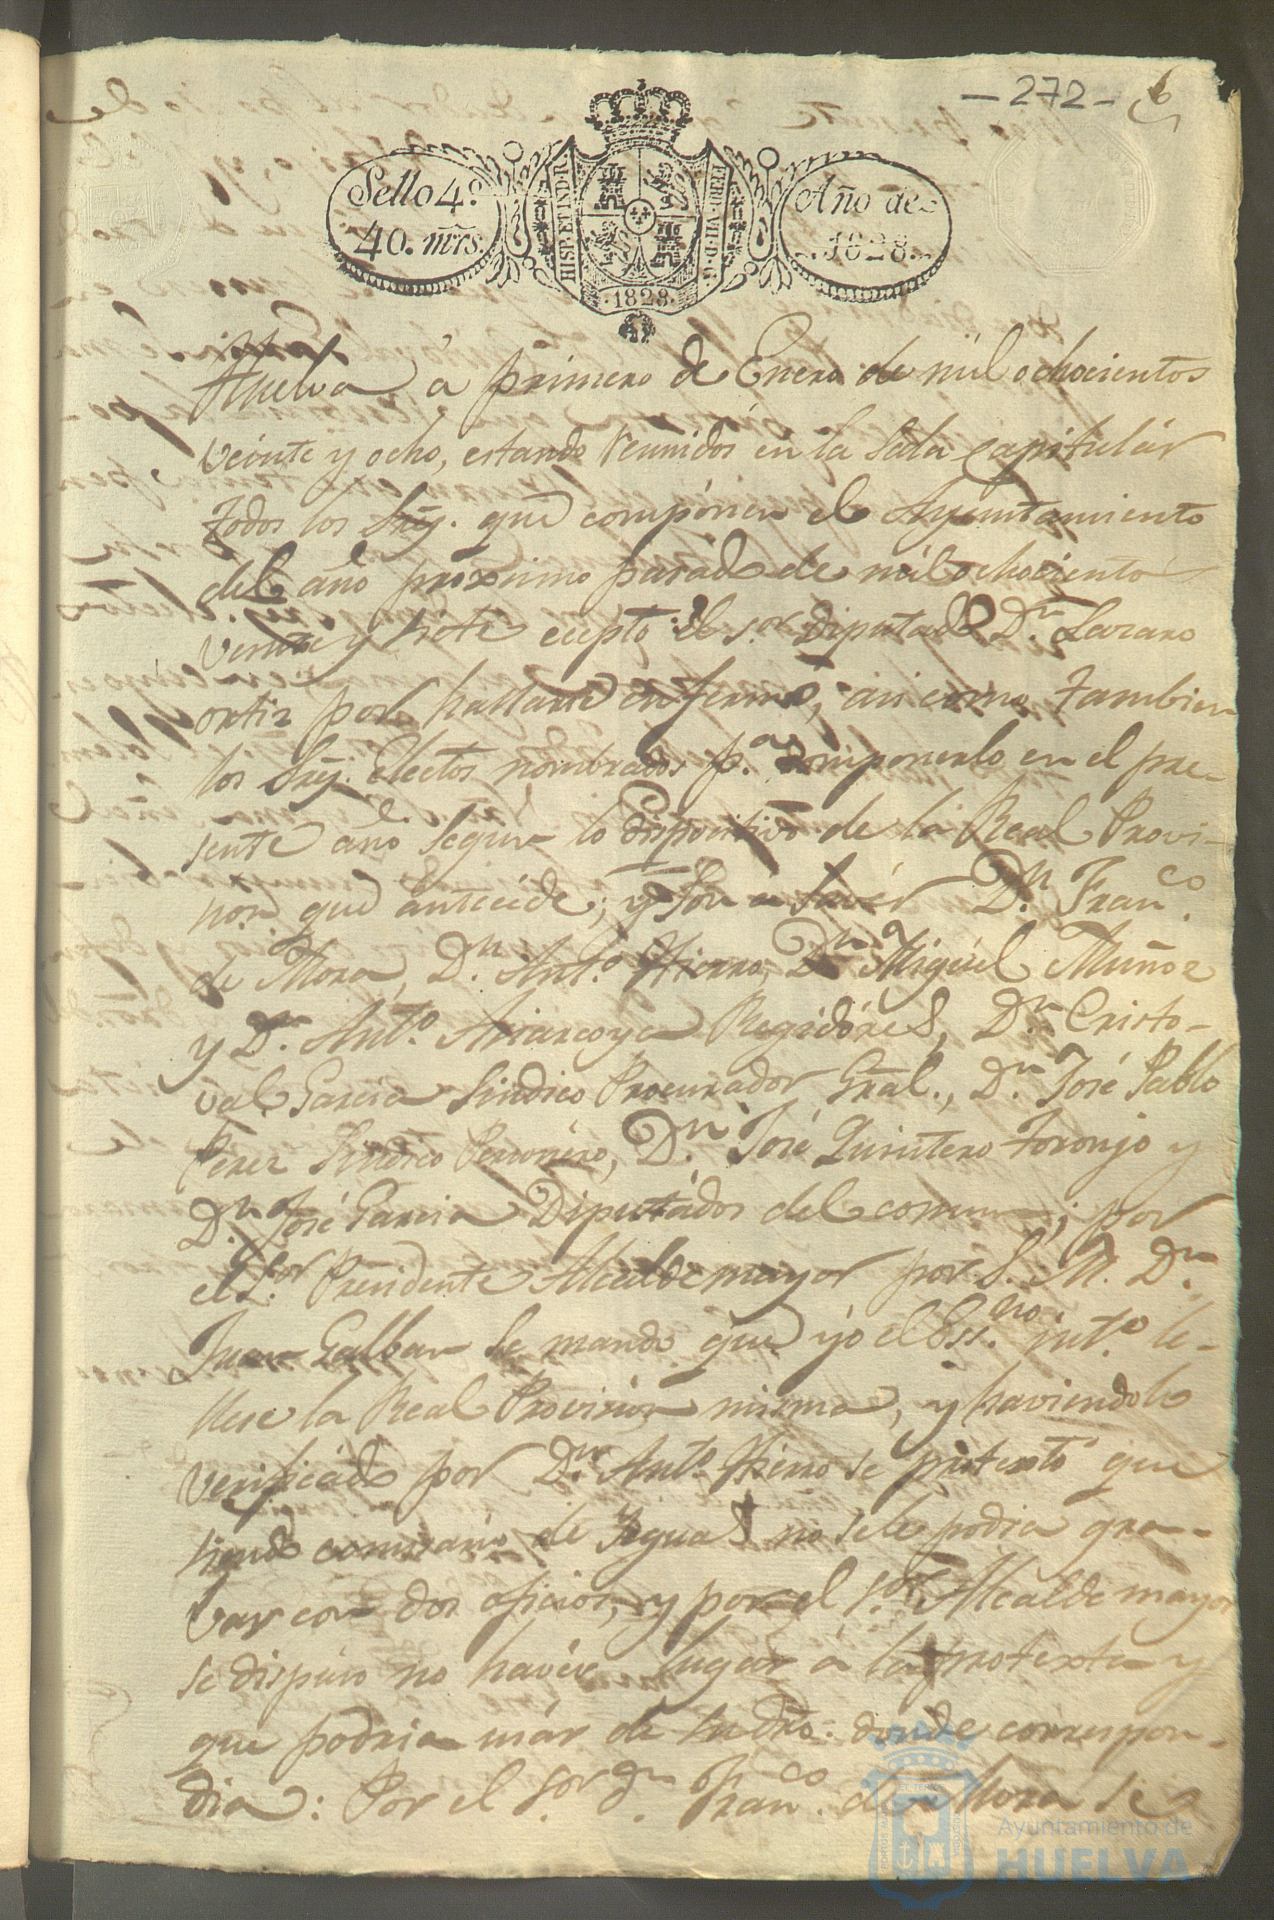 -272- 6
Sello 4.º
40. mrs.
HISP. ET IND. R.
FERD. VII. D. G.
1828.
Año de
1828.
Huelva á primero de Enero de mil ochocientos
veinte y ocho, estando reunidos en la Sala Capitulár
todos los Sres. que compónen el Ayuntamiento
del año proximo pasado de mil ochociento
veinte y siete ecepto el sor. Diputado Dn. Lazaro
ortiz por hallarse enfermo, asi como tambien
los Sres. electos nombrados pa. componerlo en el pre-
sente año segun lo dispocitivo de la Real Provi-
non que antecede; y son a savér Dn. Franco.
de Mora, Dn. Anto. Hierro, Dn. Miguel Muñoz
y Dn. Anto. Regidóres, Dn. Cristo-
val Garcia Sindico Procurador Gral., Dn. José Pablo
Perez Sindico Personéro, Dn. José Quintero Toronjo y
Dn. José Garcia Diputádos del comun; por
el Sor. Presidente Alcalde mayor por S. M. Dn.
Juan Galban se mandó que yo el Essno. infº. le-
llese la Real Provision misma, y haviendolo
verificado por Dn. Anto. Hierro se protextó que
siendo comisario de Yeguas no se le podia gra-
var con dos oficios, y por el Sor. Alcalde mayor
se dispuso no havér lugar á la protexta y
que podria usár de su dro. donde correspon-
dia: Por el Sor. Dn. Franco. de Mora se
Ayuntamiento de
HUELVA